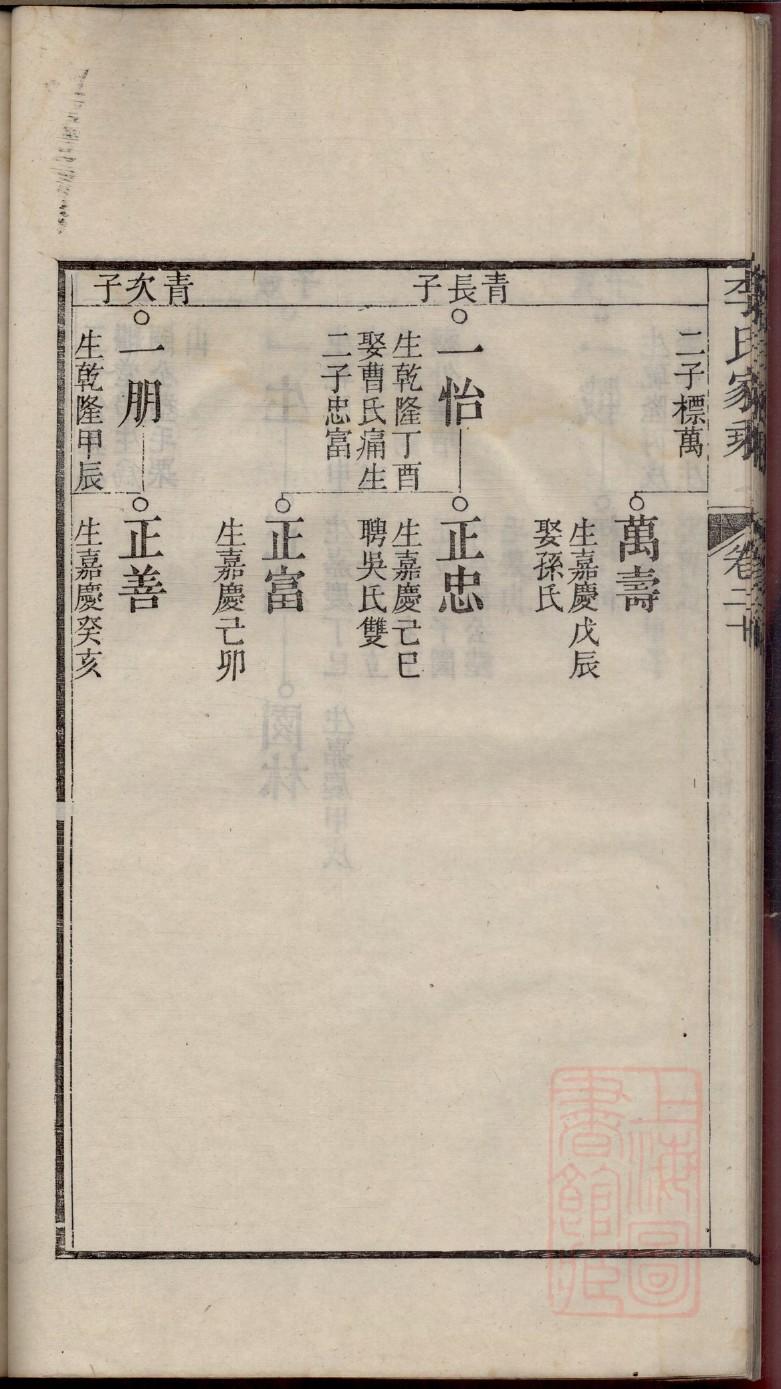 李氏家乘
卷二十
二子標萬
萬壽
生嘉慶戊辰
娶孫氏
青長子
一怡
生乾隆丁酉
娶曹氏痛生
二子忠富
正忠
生嘉慶己巳
聘吳氏雙
正富
生嘉慶己卯
青次子
一朋
生乾隆甲辰
正善
生嘉慶癸亥
上海圖
書館藏